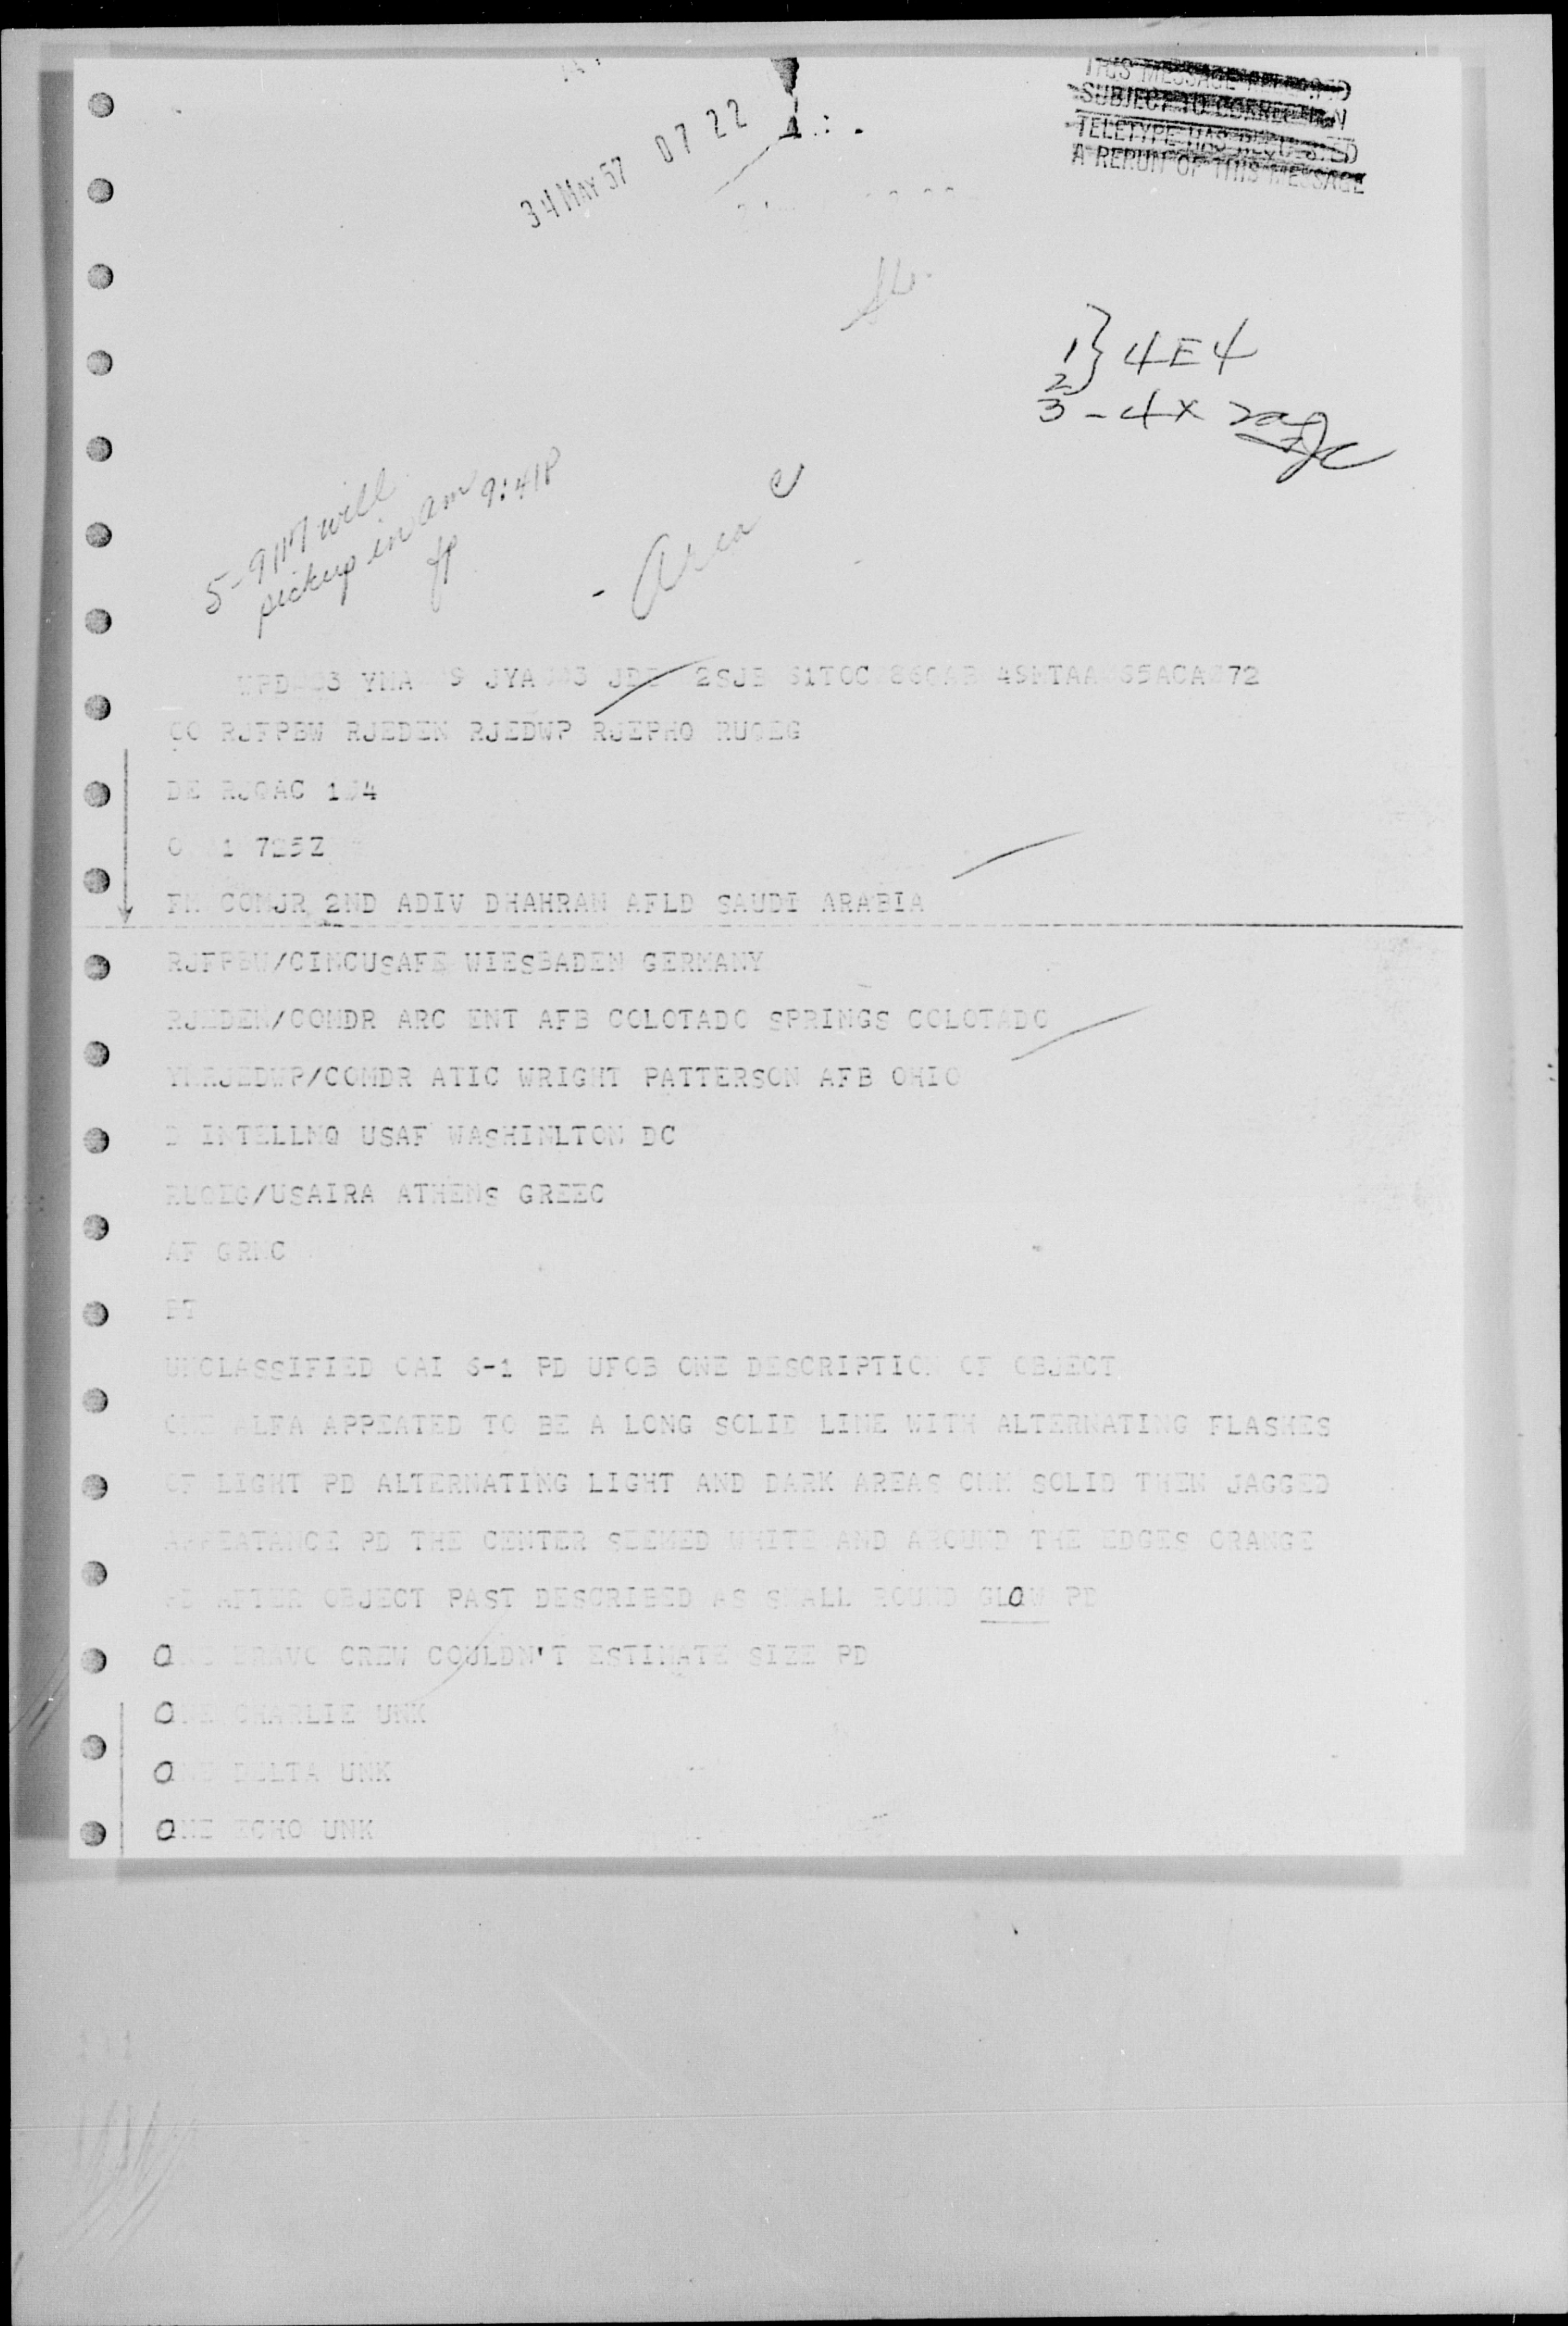 THIS MESSAGE
SUBJECT TO CORRECTION
TELETYPE HAS REQUESTED
A RERUN OF THIS MESSAGE
34 MAY 57 07 22
1 } 4E4
2
3 - 4X
5-9 will
pickup in am 9:41P
Area
CO RJFPBW RJEDEN RJEDWP RJEPHO RUQEG
DE RJQAC
FM COMJR 2ND ADIV DHAHRAN AFLD SAUDI ARABIA
RJFPBW/CINCUSAFE WIESBADEN GERMANY
RJEDEN/COMDR ARC ENT AFB COLOTADO SPRINGS COLOTADO
YMRJEDWP/COMDR ATIC WRIGHT PATTERSON AFB OHIO
D INTELLNQ USAF WASHINLTON DC
RUQEG/USAIRA ATHENS GREEC
AF GRNC
BT
UNCLASSIFIED OAI 6-1 PD UFOB ONE DESCRIPTION OF OBJECT
ONE ALFA APPEATED TO BE A LONG SOLID LINE WITH ALTERNATING FLASHES
OF LIGHT PD ALTERNATING LIGHT AND DARK AREAS CMM SOLID THEN JAGGED
APPEATANCE PD THE CENTER SEEMED WHITE AND AROUND THE EDGES ORANGE
PD AFTER OBJECT PAST DESCRIBED AS SMALL ROUND GLOW PD
ONE BRAVO CREW COULDN'T ESTIMATE SIZE PD
ONE CHARLIE UNK
ONE DELTA UNK
ONE ECHO UNK